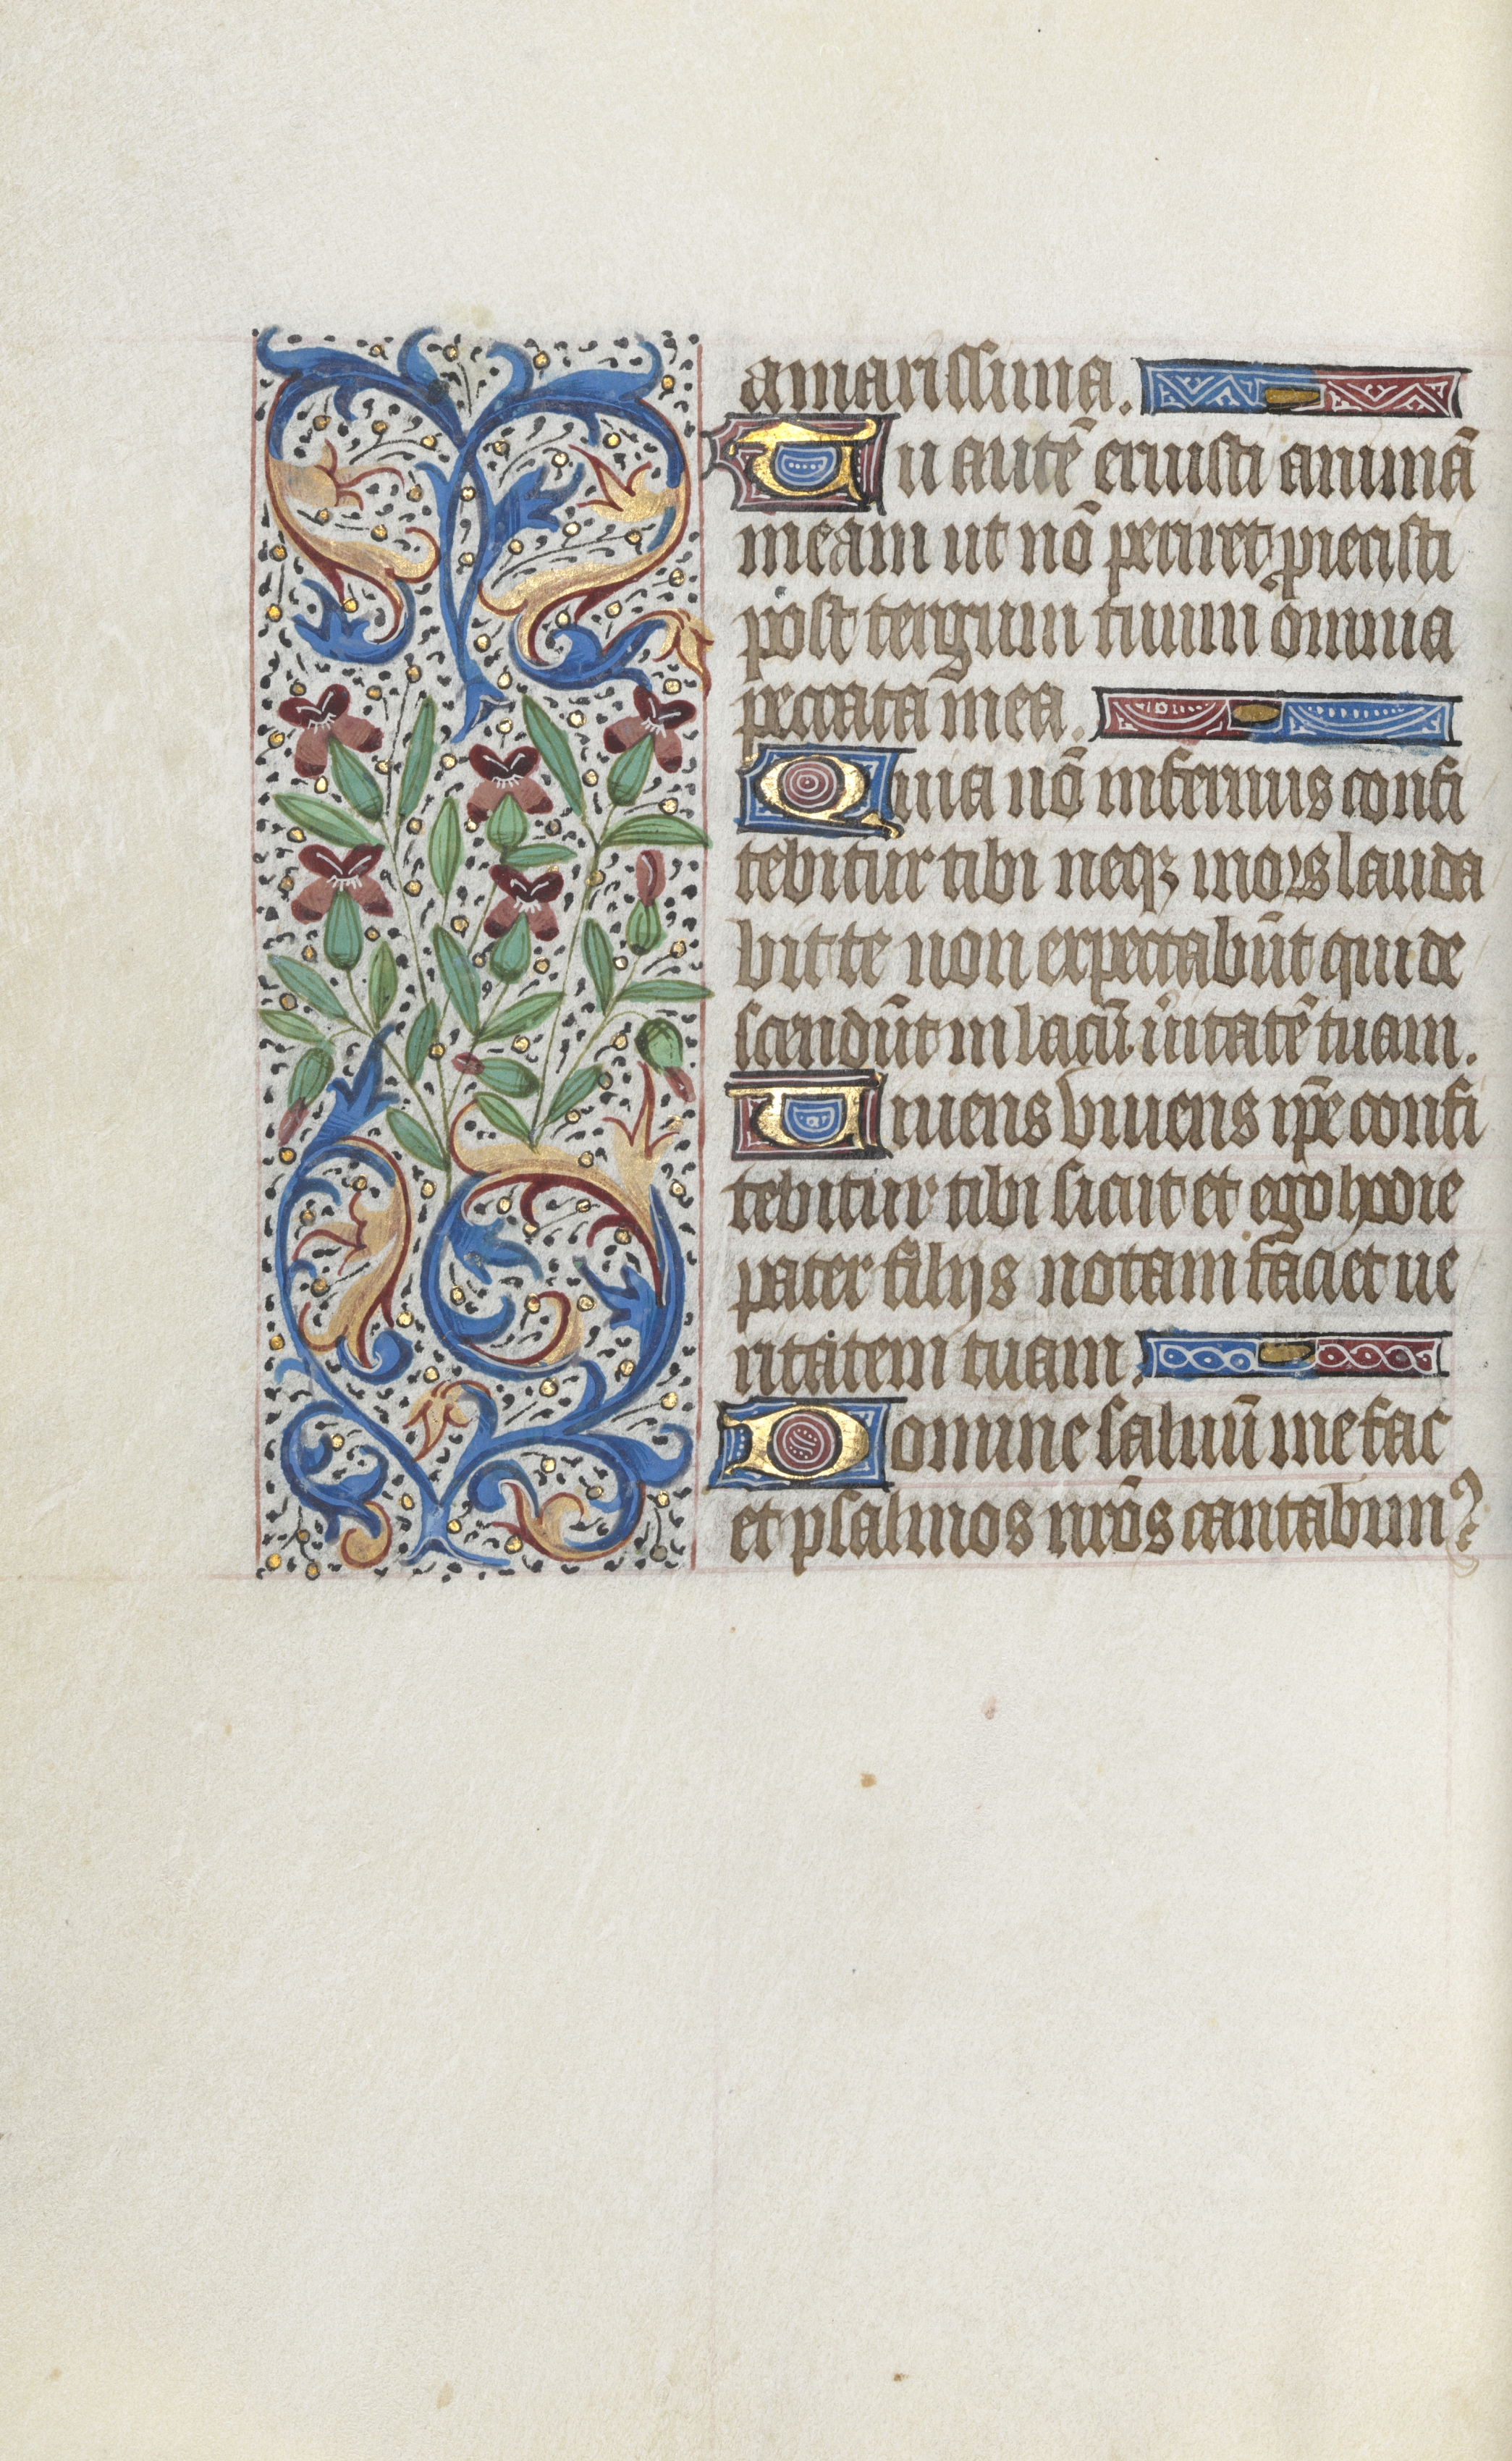 amarissima.
Tu autē eruisti animā
meam ut nō periret, piecisti
post tergum tuum omnia
peccata mea.
Quia nō infernus confi
tebitur tibi neqꝫ mors lauda
bit te non expectabūt qui de
scendūt in lacū ūitatē tuam.
Viuens viuens ip̄e confi
tebitur tibi sicut et ego hodie
pater filijs notam faciet ue
ritatem tuam.
Domine saluū me fac
et psalmos nr̄os cantabim⁹